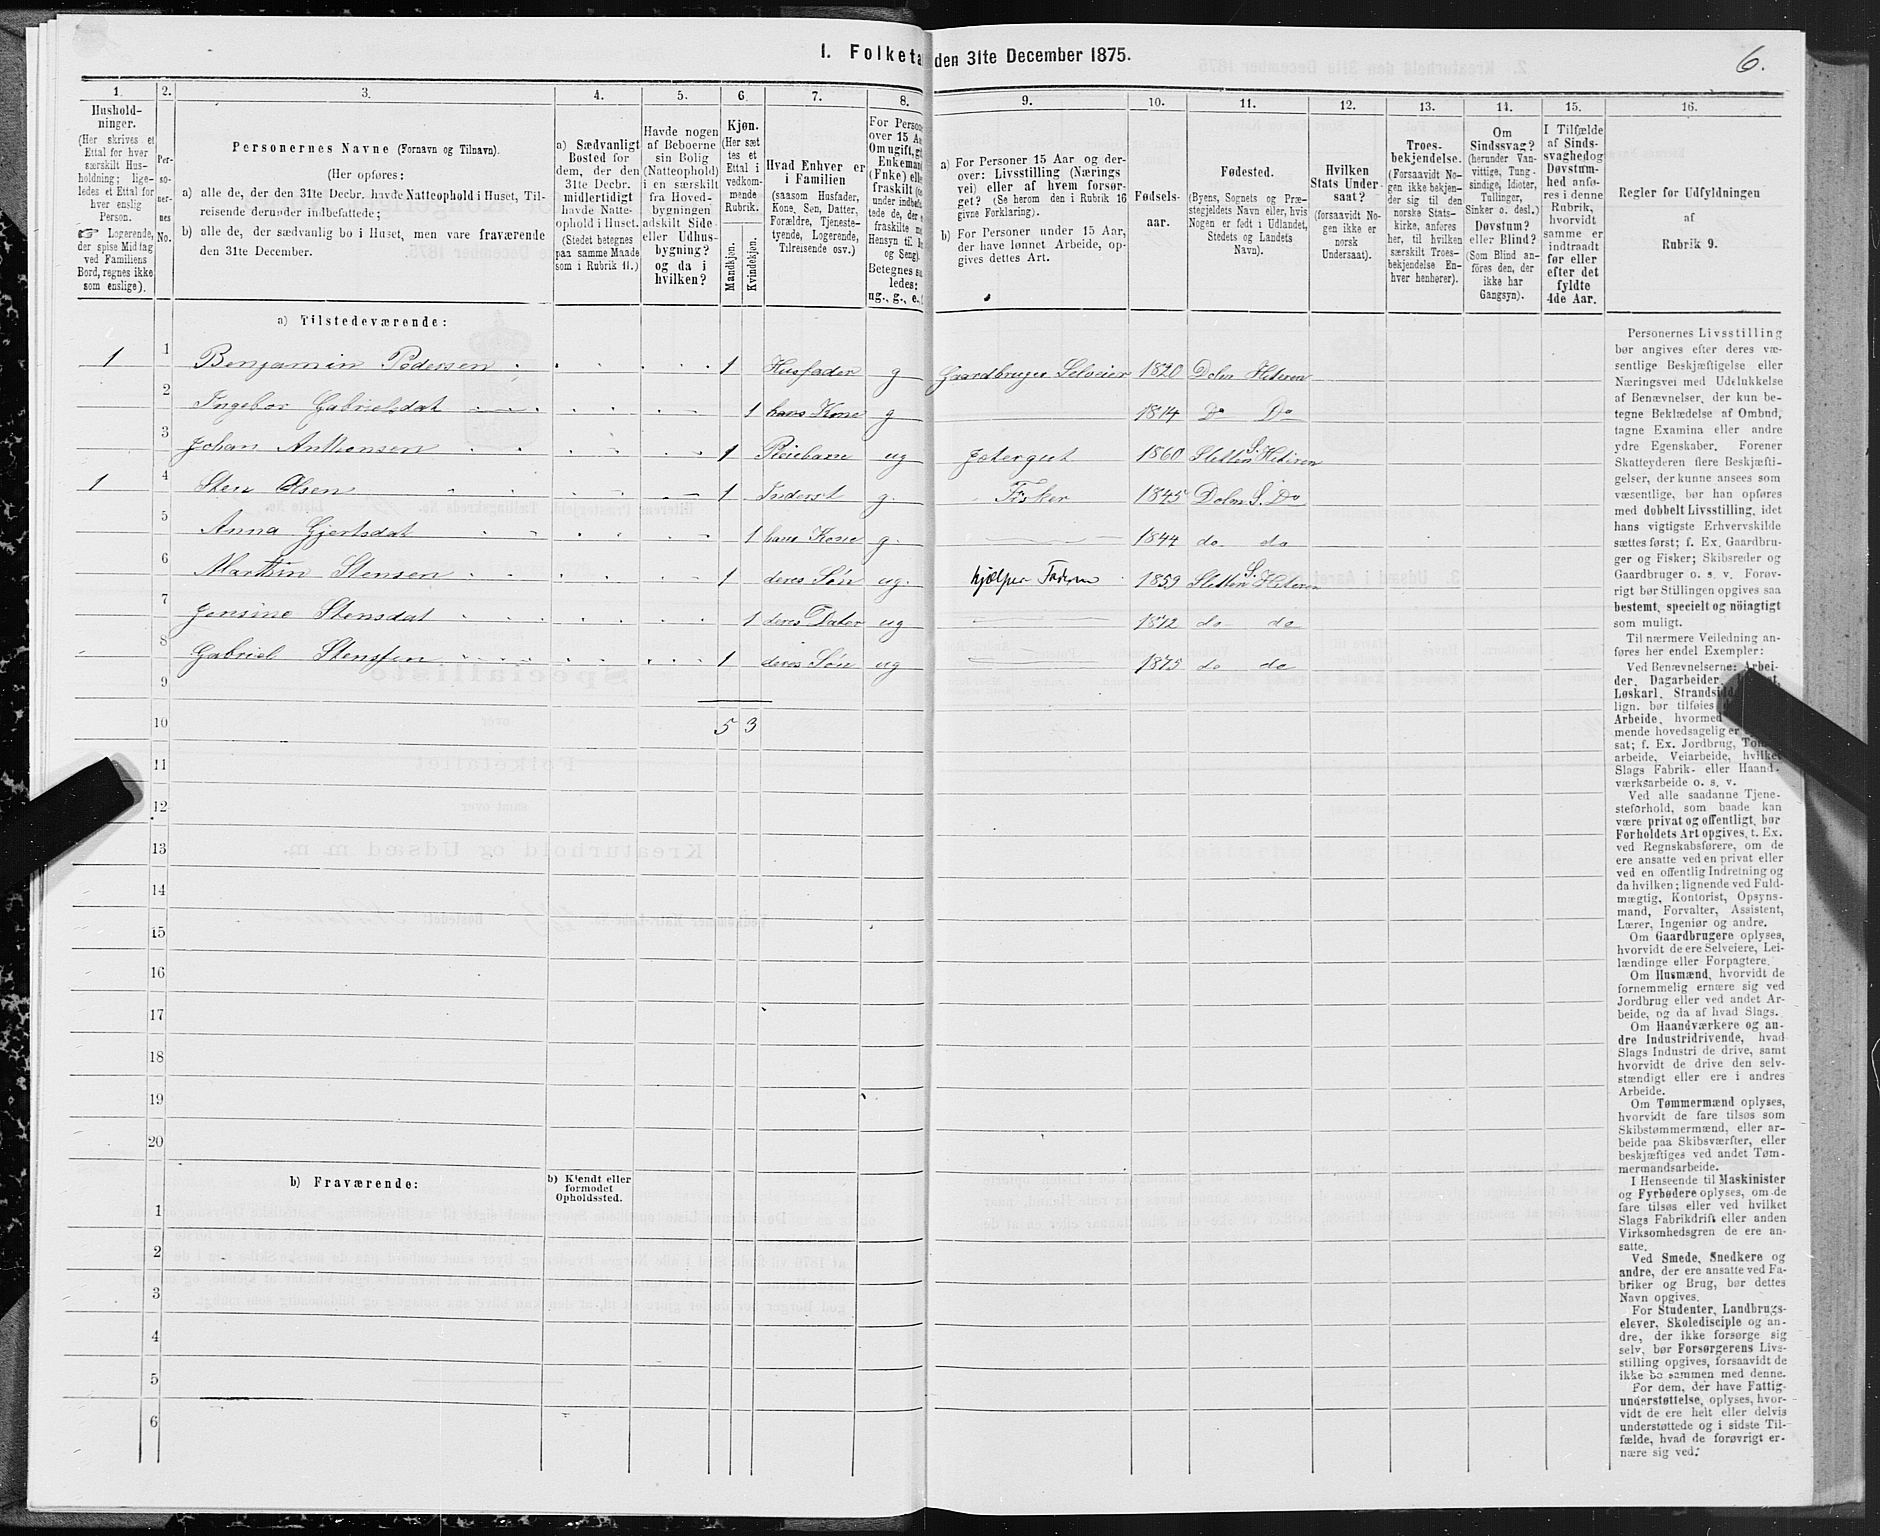 I. Folketa den 31te December 1875.
6.
1.
Hushold-
ninger.
(Her skrives et
Ettal for hver
særskilt Hus-
holdning; lige-
ledes et Ettal for
hver enslig
Person.
☞ Logerende,
der spise Middag
ved Familiens
Bord, regnes ikke
som enslige).
2.
Per-
so-
ner-
nes
No.
3.
Personernes Navne (Fornavn og Tilnavn).
(Her opføres:
a) alle de, der den 31te Decbr. havde Natteophold i Huset, Til-
reisende derunder indbefattede;
b) alle de, der sædvanlig bo i Huset, men vare fraværende
den 31te December.
4.
a) Sædvanligt
Bosted for
dem, der den
31te Decbr.
midlertidigt
havde Natte-
ophold i Huset.
(Stedet betegnes
paa samme Maade
som i Rubrik 11.)
5.
Havde nogen
af Beboerne
sin Bolig
(Natteophold)
i en særskilt
fra Hoved-
bygningen
adskilt Side-
eller Udhus-
bygning?
og da i
hvilken?
6.
Kjøn.
(Her sæt
tes et
Ettal i
vedkom-
mende
Rubrik.
Mandkjøn.
Kvindekjøn.
7.
Hvad Enhver er
i Familien
(saasom Husfader,
Kone, Søn, Datter,
Forældre, Tjeneste-
tyende, Logerende,
Tilreisende osv.)
8.
For Person
over 15 Aa
Om ugift, gi
Enkeman
(Fnke) elle
fraskilt (o
under indbe
tede de, der
fraskilte, m
Hensyn til
og Seng).
Betegnes sa
ledes:
ug., g., e.,
9.
a) For Personer 15 Aar og der-
over: Livsstilling (Nærings
vei) eller af hvem forsør-
get? (Se herom den i Rubrik 16
givne Forklaring).
b) For Personer under 15 Aar,
der have lønnet Arbeide, op-
gives dettes Art.
10.
Fødsels-
aar.
11.
Fødested.
(Byens, Sognets og Præ-
stegjeldets Navn eller, hvis
Nogen er født i Udlandet,
Stedets og Landets
Navn).
12.
Hvilken
Stats Under-
saat?
(forsaavidt No-
gen ikke er
norsk
Undersaat).
13.
Troes-
bekjendelse.
(Forsaavidt No-
gen ikke bekjen-
der sig til den
norske Stats-
kirke, anføres
her, til hvilken
særskilt Troes-
bekjendelse En-
hver henhører).
14.
Om
Sindssvag?
(herunder Van-
vittige, Tung-
sindige, Idioter,
Tullinger,
Sinker o. desl.)
Døvstum?
eller Blind?
(Som Blind an-
føres den, der
ikke har
Gangsyn).
15.
I Tilfælde
af Sinds-
svaghed og
Døvstum-
hed anfø-
res i denne
Rubrik,
hvorvidt
samme er
indtraadt
før eller
efter det
fyldte
4de Aar.
16.
Regler for Udfyldningen
af
Rubrik 9.
a) Tilstedeværende:
1 1 Benjamin Pedersen 1 Husfader g Gaardbruger Selveier 1820 Dolm Hiteren
2 Ingebor Gabrielsdat 1 hans Kone g 1814 Do Do
3 Johan Anthonsen 1 Pleiebarn ug Jætergut 1860 Sletten S. Hiteren
1 4 Sten Olsen 1 Inderst g. Fisker 1845 Dolm S. Do
5 Anna Gjertsdat 1 hans Kone g. 1844 do do
6 Marthin Stensen 1 deres Søn ug. hjælper Faderen 1859 Sletten S. Hiteren
7 Jensine Stensdat 1 deres Dater ug 1872 do do
8 Gabriel Stensen 1 deres Søn ug 1875 do do
9
10 5 3
11
12
13
14
15
16
17
18
19
20
b) Fraværende:
b) Kjendt eller
formodet
Opholdssted.
1
2
3
4
5
6
Personernes Livsstilling
bør angives efter deres væ-
sentlige Beskjæftigelse eller
Næringsvei med Udelukkelse
af Benævnelser, der kun be-
tegne Beklædelse af Ombud,
tagne Examina eller andre
ydre Egenskaber. Forener
Skatteyderen flere Beskjæfti-
gelser, der kunne ansees som
væsentlige, bør han opføres
med dobbelt Livsstilling, idet
hans vigtigste Erhvervskilde
sættes først; f. Ex. Gaardbru-
ger og Fisker; Skibsreder og
Gaardbruger o. s. v. Forøv-
rigt bør Stillingen opgives saa
bestemt, specielt og nöiagtigt
som muligt.
Til nærmere Veiledning an-
føres her endel Exempler:
Ved Benævnelserne: Arbei-
der, Dagarbeider,
Løskarl, Strandsid
lign. bør tilføies
Arbeide, hvormed
mende hovedsagelig er
sat; f. Ex. Jordbrug, Tom
arbeide, Veiarbeide, hvilket
Slags Fabrik- eller Haand-
værksarbeide o. s. v.
Ved alle saadanne Tjene-
steforhold, som baade kan
være privat og offentligt, bør
Forholdets Art opgives, t. Ex.
ved Regnskabsførere, om de
ere ansatte ved en privat eller
ved en offentlig Indretning og
da hvilken; lignende ved Fuld-
mægtig, Kontorist, Opsyns-
mand, Forvalter, Assistent,
Lærer, Ingeniør og andre.
Om Gaardbrugere oplyses,
hvorvidt de ere Selveiere, Lei-
lændinge eller Forpagtere.
Om Husmænd, hvorvidt de
fornemmelig ernære sig ved
Jordbrug eller ved andet Ar-
beide, og da af hvad Slags.
Om Haandværkere og an-
dre Industridrivende, hvad
Slags Industri de drive, samt
hvorvidt de drive den selv-
stændigt eller ere i andres
Arbeide.
Om Tømmermænd oplyses,
hvorvidt de fare tilsøs som
Skibstømmermænd, eller ar-
beide paa Skibsværfter, eller
beskjæftiges ved andet Tøm-
mermandsarbeide.
I Henseende til Maskinister
og Fyrbødere oplyses, om de
fare tilsøs eller ved hvilket
Slags Fabrikdrift eller anden
Virksomhedsgren de ere an-
satte.
Ved Smede, Snedkere og
andre, der ere ansatte ved Fa-
briker og Brug, bør dettes
Navn opgives.
For Studenter, Landbrugs-
elever, Skoledisciple og an-
dre, der ikke forsørge sig
selv, bør Forsørgerens Livs-
stilling opgives, forsaavidt de
ikke bo sammen med denne.
For dem, der have Fattig-
understøttelse, oplyses, hvor-
vidt de ere helt eller delvis
understøttede og i sidste Til-
fælde, hvad de forøvrigt er-
nære sig ved.